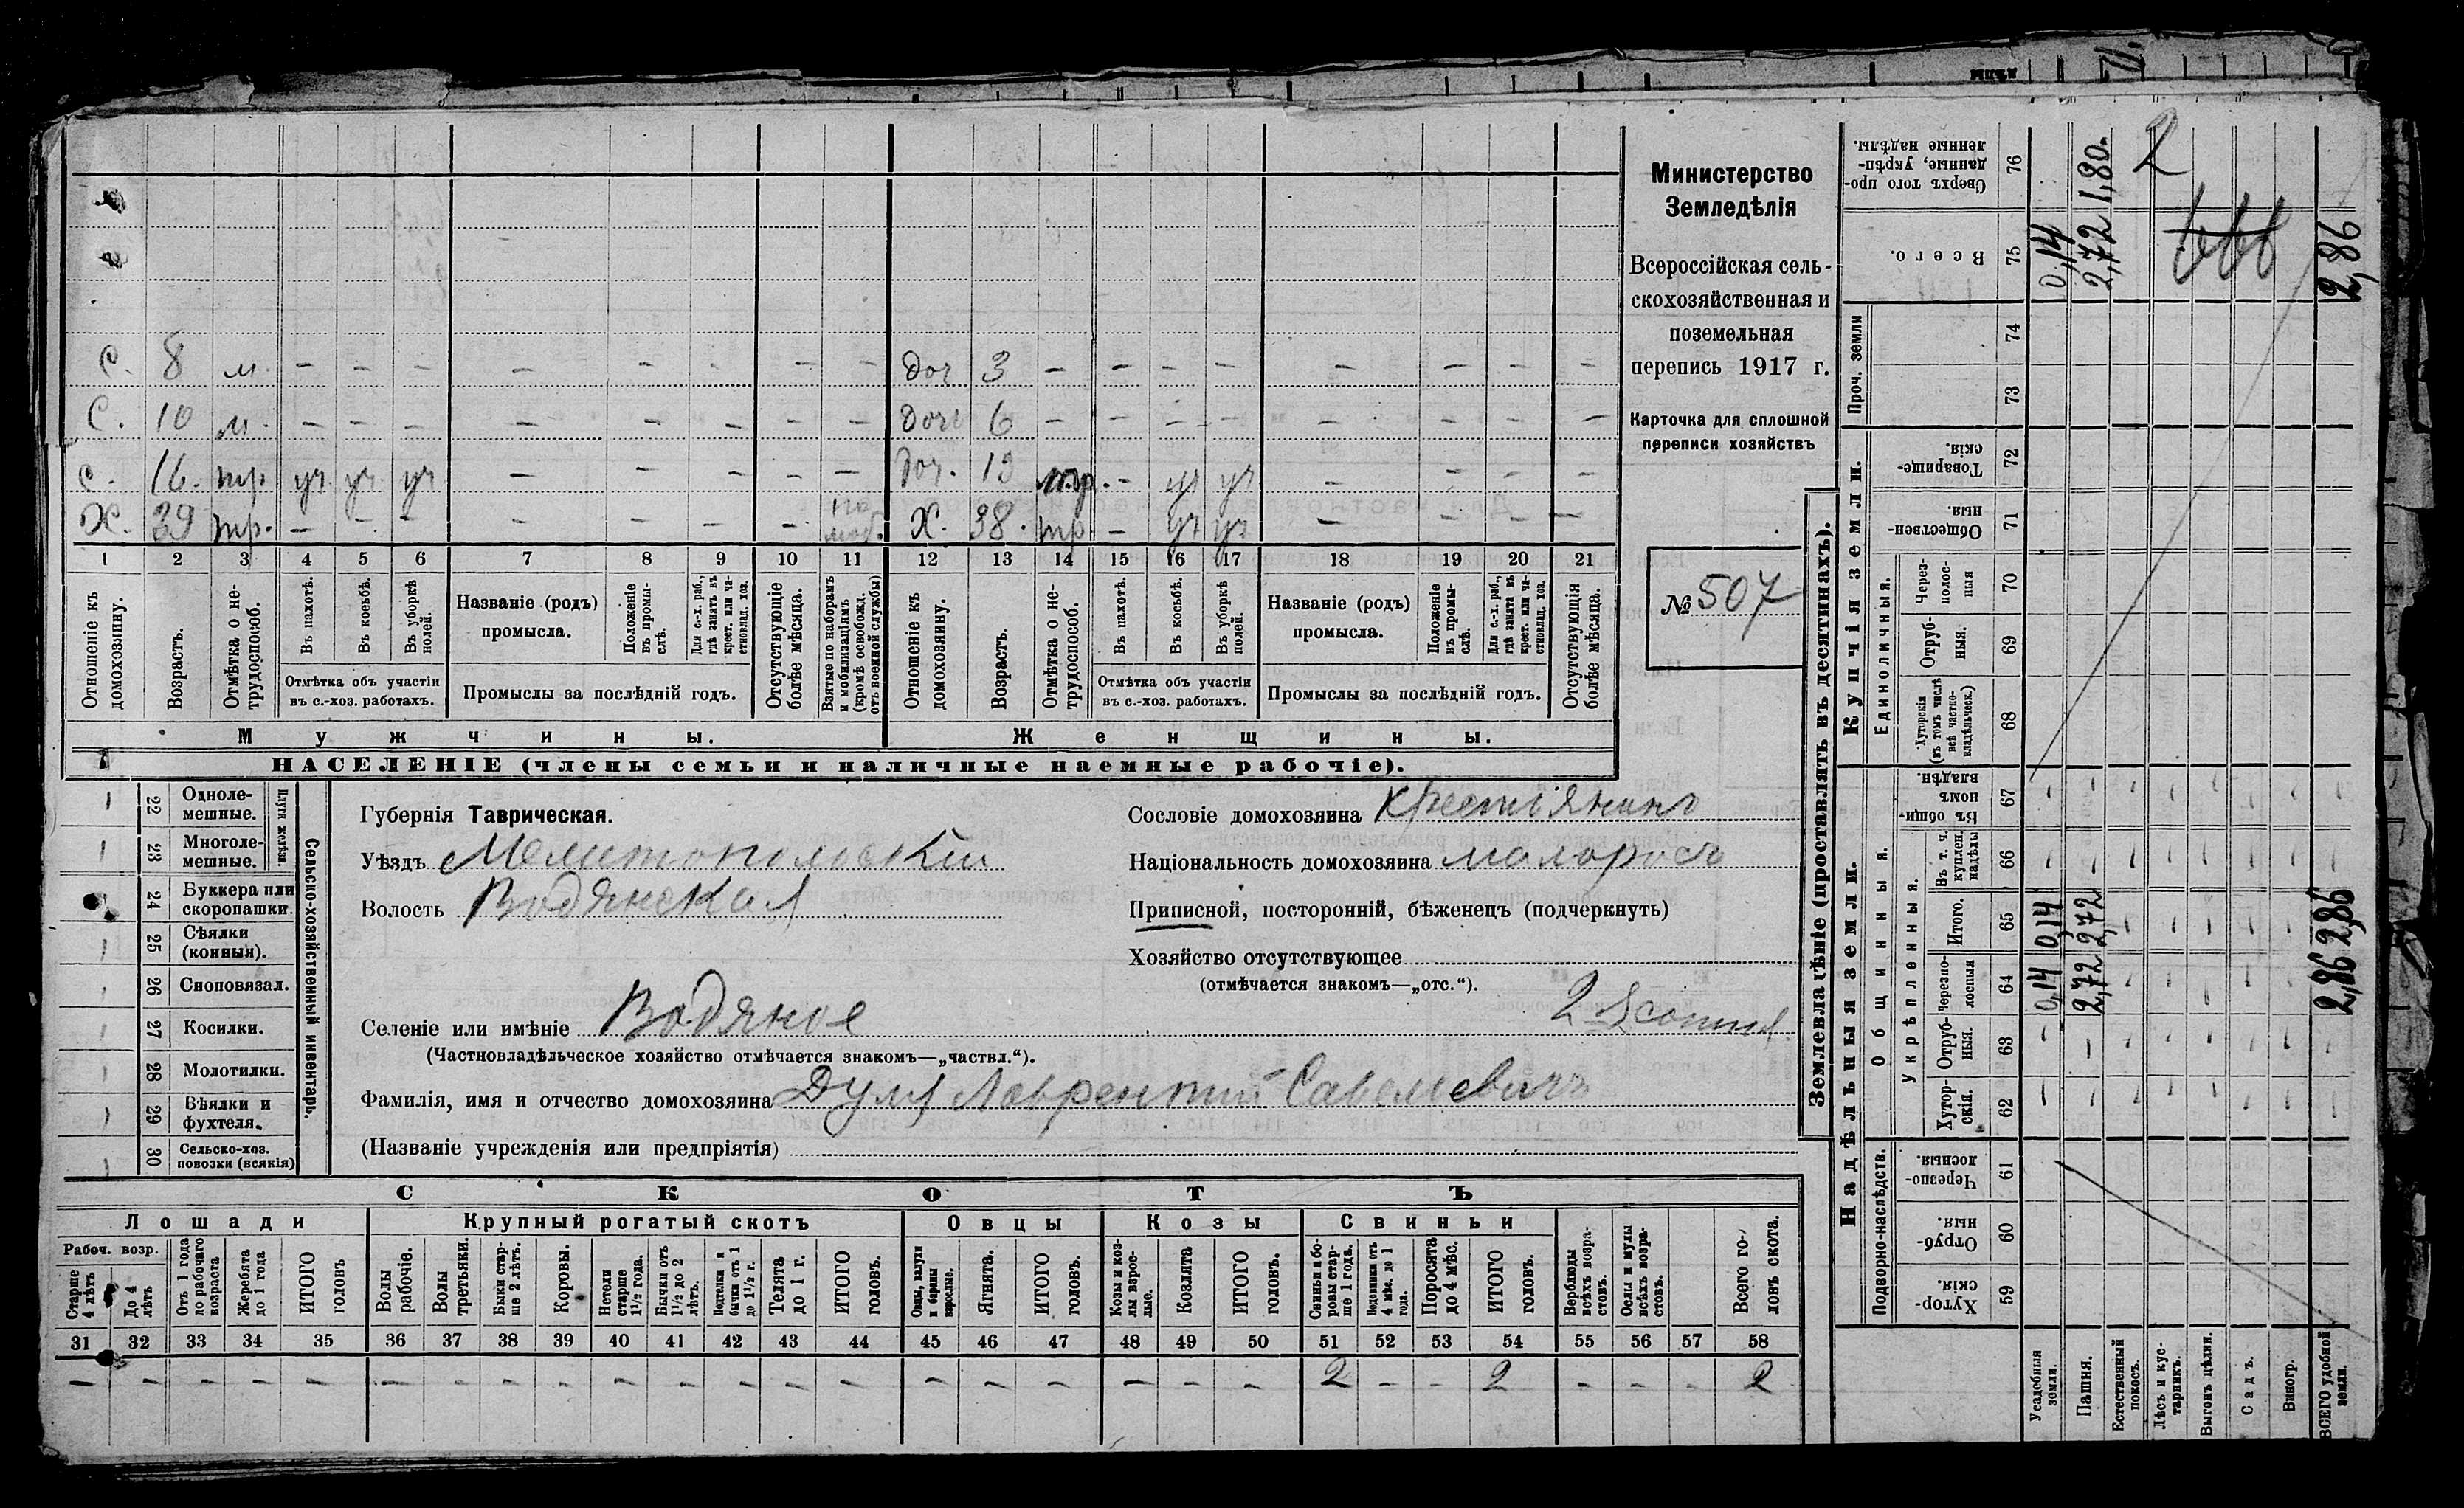 Министерство
Земледѣлія
Всероссійская сель-
скохозяйственная и
поземельная
перепись 1917 г.
Карточка для сплошной
переписи хозяйствъ
№ 507
С. 8 м. — — — — — — — — доч 3 — — — — — — — —
С. 10 м. — — — — — — — — доч 6 — — — — — — — —
С. 16. тр. уч уч уч — — — — — доч. 13 тр. — уч уч — — — —
Х. 39 тр. — — — — — — — по моб. Х. 38. тр — уч уч — — — —
1 2 3 4 5 6 7 8 9 10 11 12 13 14 15 16 17 18 19 20 21
Отношеніе къ домохозяину.
Возрастъ.
Отмѣтка о не-трудоспособ.
Въ пахотѣ.
Въ косьбѣ.
Въ уборкѣ полей.
Отмѣтка объ участіи въ с.-хоз. работахъ.
Названіе (родъ) промысла.
Положеніе въ промы-слѣ.
Для с.-х. раб., гдѣ занятъ въ крест. или ча-стновлад. хоз.
Промыслы за послѣдній годъ.
Отсутствующіе болѣе мѣсяца.
Взятые по наборамъ и мобилизаціямъ (кромѣ освобожд. отъ военной службы)
Отношеніе къ домохозяину.
Возрастъ.
Отмѣтка о не-трудоспособ.
Въ пахотѣ.
Въ косьбѣ.
Въ уборкѣ полей.
Отмѣтка объ участіи въ с.-хоз. работахъ.
Названіе (родъ) промысла.
Положеніе въ промы-слѣ.
Для с.-х. раб., гдѣ занята въ крест. или ча-стновлад. хоз.
Промыслы за послѣдній годъ.
Отсутствующія болѣе мѣсяца.
Мужчины. Женщины.
НАСЕЛЕНІЕ (члены семьи и наличные наемные рабочіе).
Сельско-хозяйственный инвентарь.
Плуги желѣзн.
22 Одноле-мешные.
23 Многоле-мешные.
24 Буккера или скоропашки
25 Сѣялки (конныя).
26 Сноповязал.
27 Косилки.
28 Молотилки.
29 Вѣялки и фухтеля.
30 Сельско-хоз. повозки (всякія)
Губернія Таврическая.
Уѣздъ Мелитопольскій
Волость Водянская
Селеніе или имѣніе Водяное 2 сотня
(Частновладѣльческое хозяйство отмѣчается знакомъ—„частвл.“).
Фамилія, имя и отчество домохозяина Дуля Лаврентій Савельевичъ
(Названіе учрежденія или предпріятія)
Сословіе домохозяина крестьянинъ
Національность домохозяина малоросъ
Приписной, посторонній, бѣженецъ (подчеркнуть)
Хозяйство отсутствующее
(отмѣчается знакомъ—„отс.“).
СКОТЪ
Лошади Крупный рогатый скотъ Овцы Козы Свиньи
Рабоч. возр.
Старше 4 лѣтъ
До 4 лѣтъ
Отъ 1 года до рабочаго возраста
Жеребята до 1 года
ИТОГО головъ
Волы рабочіе.
Волы третьяки.
Быки стар-ше 2 лѣтъ.
Коровы.
Нетели старше 1½ года.
Бычки отъ 1½ до 2 лѣтъ.
Подтелки и бычки отъ 1 до 1½ г.
Телята до 1 г.
ИТОГО головъ.
Овцы, валухи и бараны взрослые.
Ягнята.
ИТОГО головъ.
Козы и коз-лы взрос-лые.
Козлята
ИТОГО головъ.
Свиньи и бо-ровы стар-ше 1 года.
Подсвинки отъ 4 мѣс. до 1 года.
Поросята до 4 мѣс.
ИТОГО головъ.
Верблюды всѣхъ возра-стовъ.
Ослы и мулы всѣхъ возра-стовъ.
Всего го-ловъ скота.
31 32 33 34 35 36 37 38 39 40 41 42 43 44 45 46 47 48 49 50 51 52 53 54 55 56 57 58
— — — — — — — — — — — — — — — — — — — — 2 — — 2 — — — 2
Землевладѣніе (проставлять въ десятинахъ).
Надѣльныя земли. Купчія земли. Проч. земли
Подворно-наслѣдств.
Общинныя.
Укрѣпленныя.
Единоличныя.
59 Хутор-скія.
60 Отруб-ныя.
61 Черезпо-лосныя.
62 Хутор-скія.
63 Отруб-ныя.
64 Черезпо-лосныя 0,14 2,72 2,86
65 Итого. 0,14 2,72 2,86
66 Въ т. ч. куплен. надѣлы
67 Въ общи-номъ владѣн.
68 Хуторскія (въ томъ числѣ всѣ частно-владѣльческ.)
69 Отруб-ныя.
70 Через-полос-ныя
71 Обществен-ныя.
72 Товарище-скія.
73
74
75 Всего. 0,14 2,72 2,86
76 Сверхъ того про-данные, укрѣп-ленные надѣлы. 1,80. 2
Усадебныя земли.
Пашня.
Естественный покосъ.
Лѣсъ и кус-тарникъ.
Выгонъ цѣлин.
Садъ.
Виногр.
ВСЕГО удобной земли.